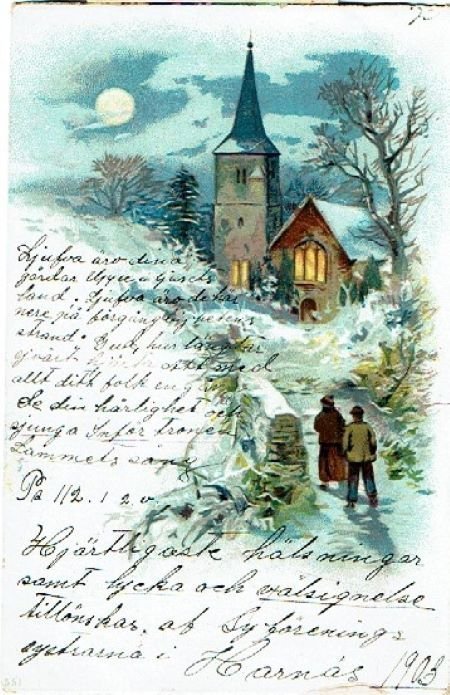 Ljufva äro dina
gårdar
land. Ljufva äro de här
nere på förgänglig
strand. Gud, hur längtar
ej vårt att med
allt ditt folk en
Se din härlighet och
sjunga Inför tronen
Lammets sång
På 112. 1 2. v.
Hjärtligaste hälsningar
samt lycka och välsignelse
tillönskar. af Syförenings
systrarna i Harnäs 1903